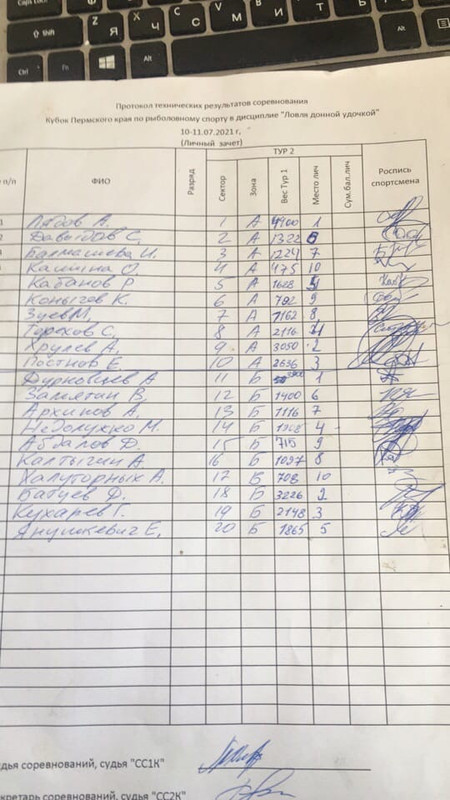 Протокол технических результатов соревнования
Кубок Пермского края по рыболовному спорту в дисциплине "Ловля донной удочкой"
10-11.07.2021 г,
(Личный зачет)
п/п ФИО Разряд ТУР 2 Роспись спортсмена
Сектор Зона Вес Тур 1 Место лич Сум.бал.лич
А. 1 А 4400 1
2 Давыдов С, 2 А 1322 6
Балмашева И. 3 А 1224 7
Калинина О. 4 А 475 10
Кабанов Р 5 А 1628 5
Коныгов К. 6 А 792 9
Зуев М, 7 А 1162 8
Терехов С, 8 А 2116 4
Хрулев А, 9 А 3050 2
Постнов Е. 10 А 2636 3
А 11 Б 1
Замятин В, 12 Б 1400 6
Архипов А. 13 Б 1116 7
Недолужко М. 14 Б 4
Абдалов Д. 15 Б 715 9
Калтыгин А. 16 Б 1097 8
Халуторных А. 17 Б 708 10
Батуев Ф. 18 Б 3226 2
Кухарев Г. 19 Б 2148 3
Янушкевич Е, 20 Б 1865 5
дья соревнований, судья "СС1К"
кретарь соревнований, судья "СС2К"